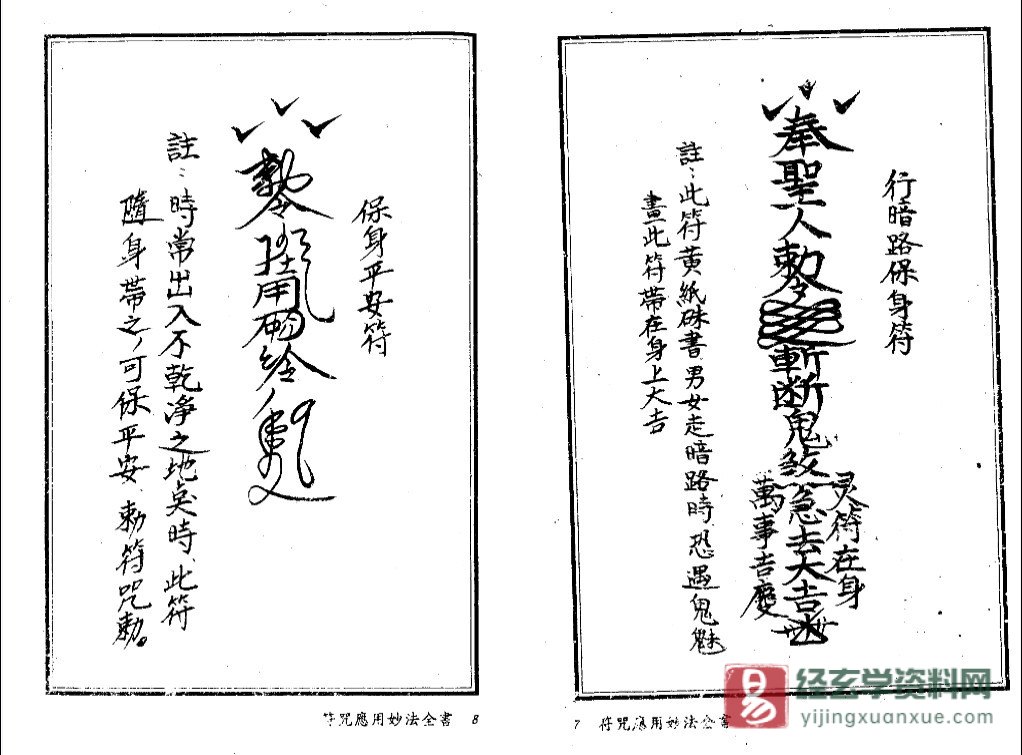 行暗路保身符
奉聖人勅令斬斷鬼煞急去大吉
灵符在身
萬事吉慶
註：此符黃紙硃書男女走暗路時、恐遇鬼魅
畫此符帶在身上大吉
7 符咒應用妙法全書
保身平安符
勅令
註：時常出入不乾淨之地点時、此符
隨身帶之，可保平安、勅符咒勅。
符咒應用妙法全書 8
易
经玄学资料网
yijingxuanxue.com